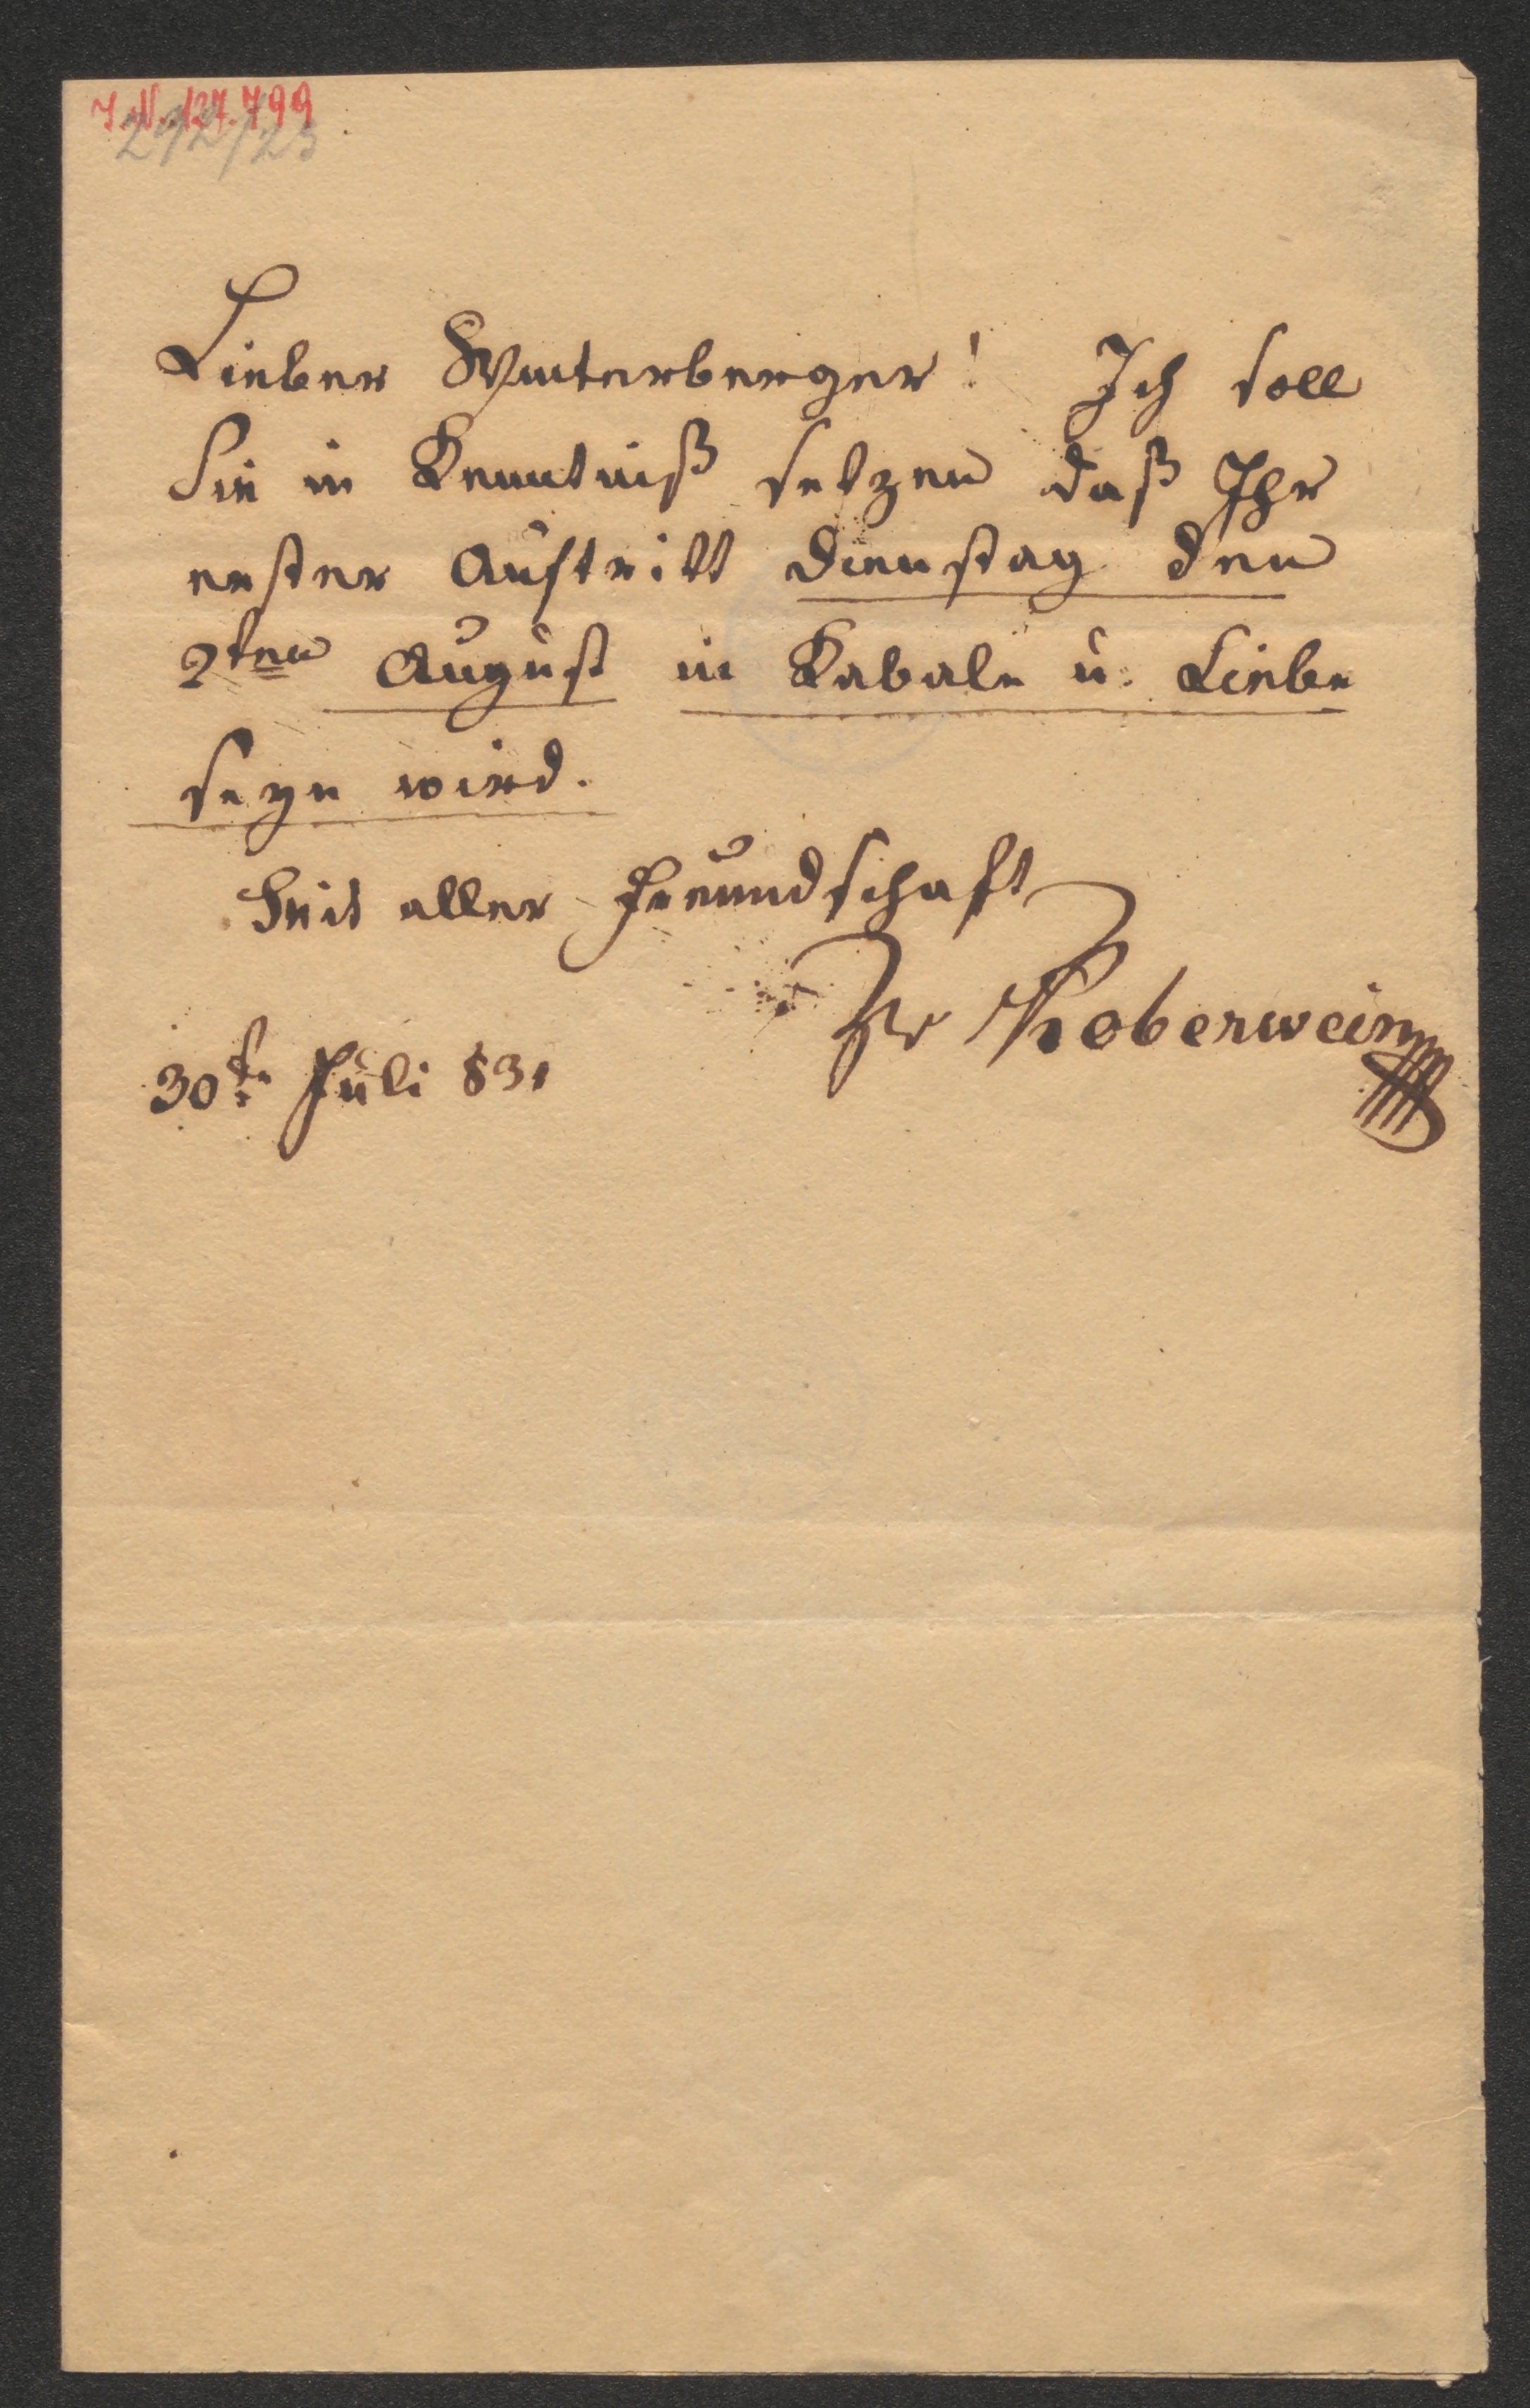 I.N. 127.799
292/23
Lieber Winterberger! Ich soll
Sie in Kenntniß setzen daß Ihr
erster Auftritt Dienstag den
2ten August in Kabale u. Liebe
seyn wird.
Mit aller Freundschaft
Ihr Koberwein
30t. Juli 831